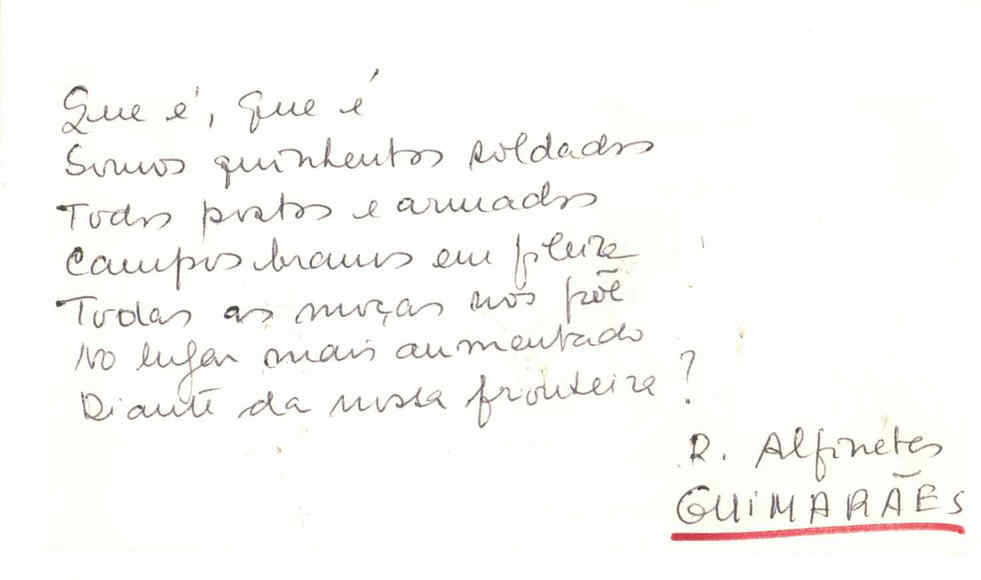 Que é, que é
Somos quinhentos soldados
Todos postos e armados
Campos brancos em fileira
Todas as moças nos põe
No lugar mais aumentado
Diante da nossa fronteira?
R. Alfinetes
GUIMARÃES